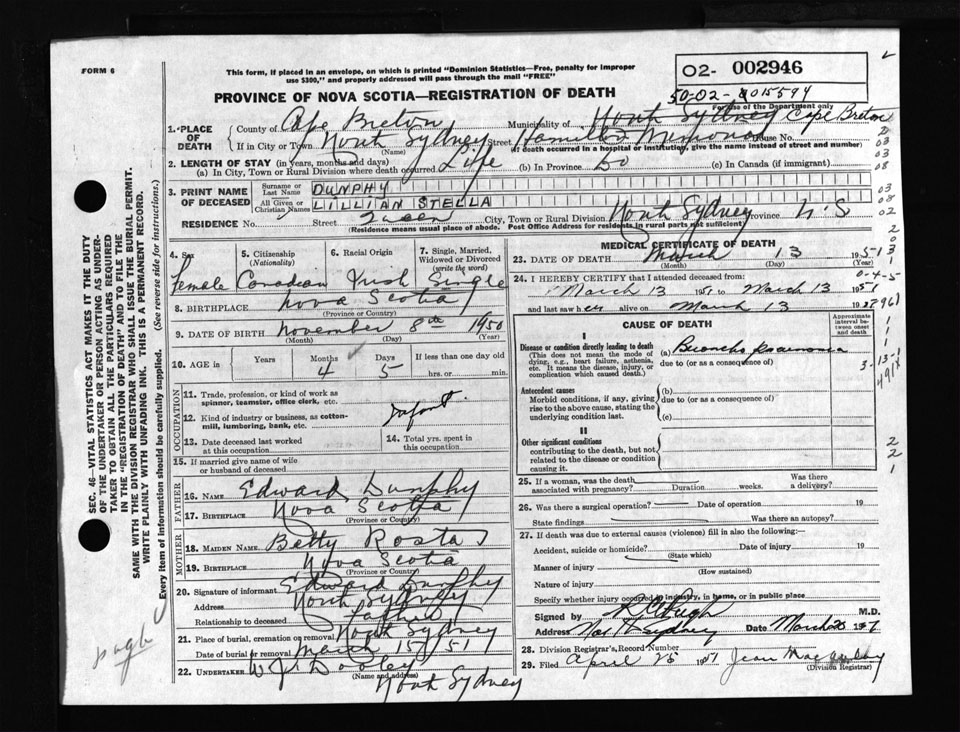 FORM 6
This form, if placed in an envelope, on which is printed "Dominion Statistics—Free, penalty for improper
use $300," and properly addressed will pass through the mail "FREE"
02- 002946
50-02-0015594
For use of the Department only
PROVINCE OF NOVA SCOTIA—REGISTRATION OF DEATH
1. PLACE OF DEATH
County of Cape Breton Municipality of North Sydney Cape Breton
If in City or Town North Sydney Street Hamilton Memorial House No.
(Name) (If death occurred in a hospital or institution, give the name instead of street and number)
2. LENGTH OF STAY (in years, months and days)
(a) In City, Town or Rural Division where death occurred Life (b) In Province Do (c) In Canada (if immigrant)
3. PRINT NAME OF DECEASED
Surname or Last Name DUNPHY
All Given or Christian Names LILLIAN STELLA
RESIDENCE No. Street Queen City, Town or Rural Division North Sydney Province N.S
(Residence means usual place of abode. Post Office Address for residents in rural parts not sufficient)
4. Sex Female
5. Citizenship (Nationality) Canadian
6. Racial Origin Irish
7. Single, Married, Widowed or Divorced (write the word) Single
8. BIRTHPLACE Nova Scotia
(Province or Country)
9. DATE OF BIRTH November 8th 1950
(Month) (Day) (Year)
10. AGE in Years Months 4 Days 5 If less than one day old hrs. or min.
OCCUPATION
11. Trade, profession, or kind of work as spinner, teamster, office clerk, etc.
12. Kind of industry or business, as cotton-mill, lumbering, bank, etc. Infant
13. Date deceased last worked at this occupation
14. Total yrs. spent in this occupation
15. If married give name of wife or husband of deceased
FATHER
16. NAME Edward Dunphy
17. BIRTHPLACE Nova Scotia
(Province or Country)
MOTHER
18. MAIDEN NAME Betty Rosta
19. BIRTHPLACE Nova Scotia
(Province or Country)
20. Signature of informant Edward Dunphy
Address North Sydney
Relationship to deceased Father
21. Place of burial, cremation or removal North Sydney
Date of burial or removal March 15 / 51
22. UNDERTAKER W J Dooley
(Name and address)
North Sydney
MEDICAL CERTIFICATE OF DEATH
23. DATE OF DEATH March 13 1951
(Month) (Day) (Year)
24. I HEREBY CERTIFY that I attended deceased from:
March 13 1951 to March 13 1951
and last saw her alive on March 13 19
CAUSE OF DEATH
Approximate interval between onset and death
I
Disease or condition directly leading to death
(This does not mean the mode of dying, e.g., heart failure, asthenia, etc. It means the disease, injury, or complication which caused death.)
(a) Broncho pneumonia
due to (or as a consequence of)
Antecedent causes
Morbid conditions, if any, giving rise to the above cause, stating the underlying condition last.
(b)
due to (or as a consequence of)
(c)
II
Other significant conditions contributing to the death, but not related to the disease or condition causing it.
25. If a woman, was the death associated with pregnancy? Duration weeks. Was there a delivery?
26. Was there a surgical operation? Date of operation 19
State findings Was there an autopsy?
27. If death was due to external causes (violence) fill in also the following:—
Accident, suicide or homicide? Date of injury 19
(State which)
Manner of injury
(How sustained)
Nature of injury
Specify whether injury occurred in industry, in home, or in public place
Signed by M.D.
Address North Sydney Date March
28. Division Registrar's Record Number
29. Filed April 25 1951 Jean
(Division Registrar)
SEC. 46—VITAL STATISTICS ACT MAKES IT THE DUTY
OF THE UNDERTAKER OR PERSON ACTING AS UNDER-
TAKER TO OBTAIN ALL THE PARTICULARS REQUIRED
IN THE "REGISTRATION OF DEATH" AND TO FILE THE
SAME WITH THE DIVISION REGISTRAR WHO SHALL ISSUE THE BURIAL PERMIT.
WRITE PLAINLY WITH UNFADING INK. THIS IS A PERMANENT RECORD.
Every item of information should be carefully supplied. (See reverse side for instructions.)